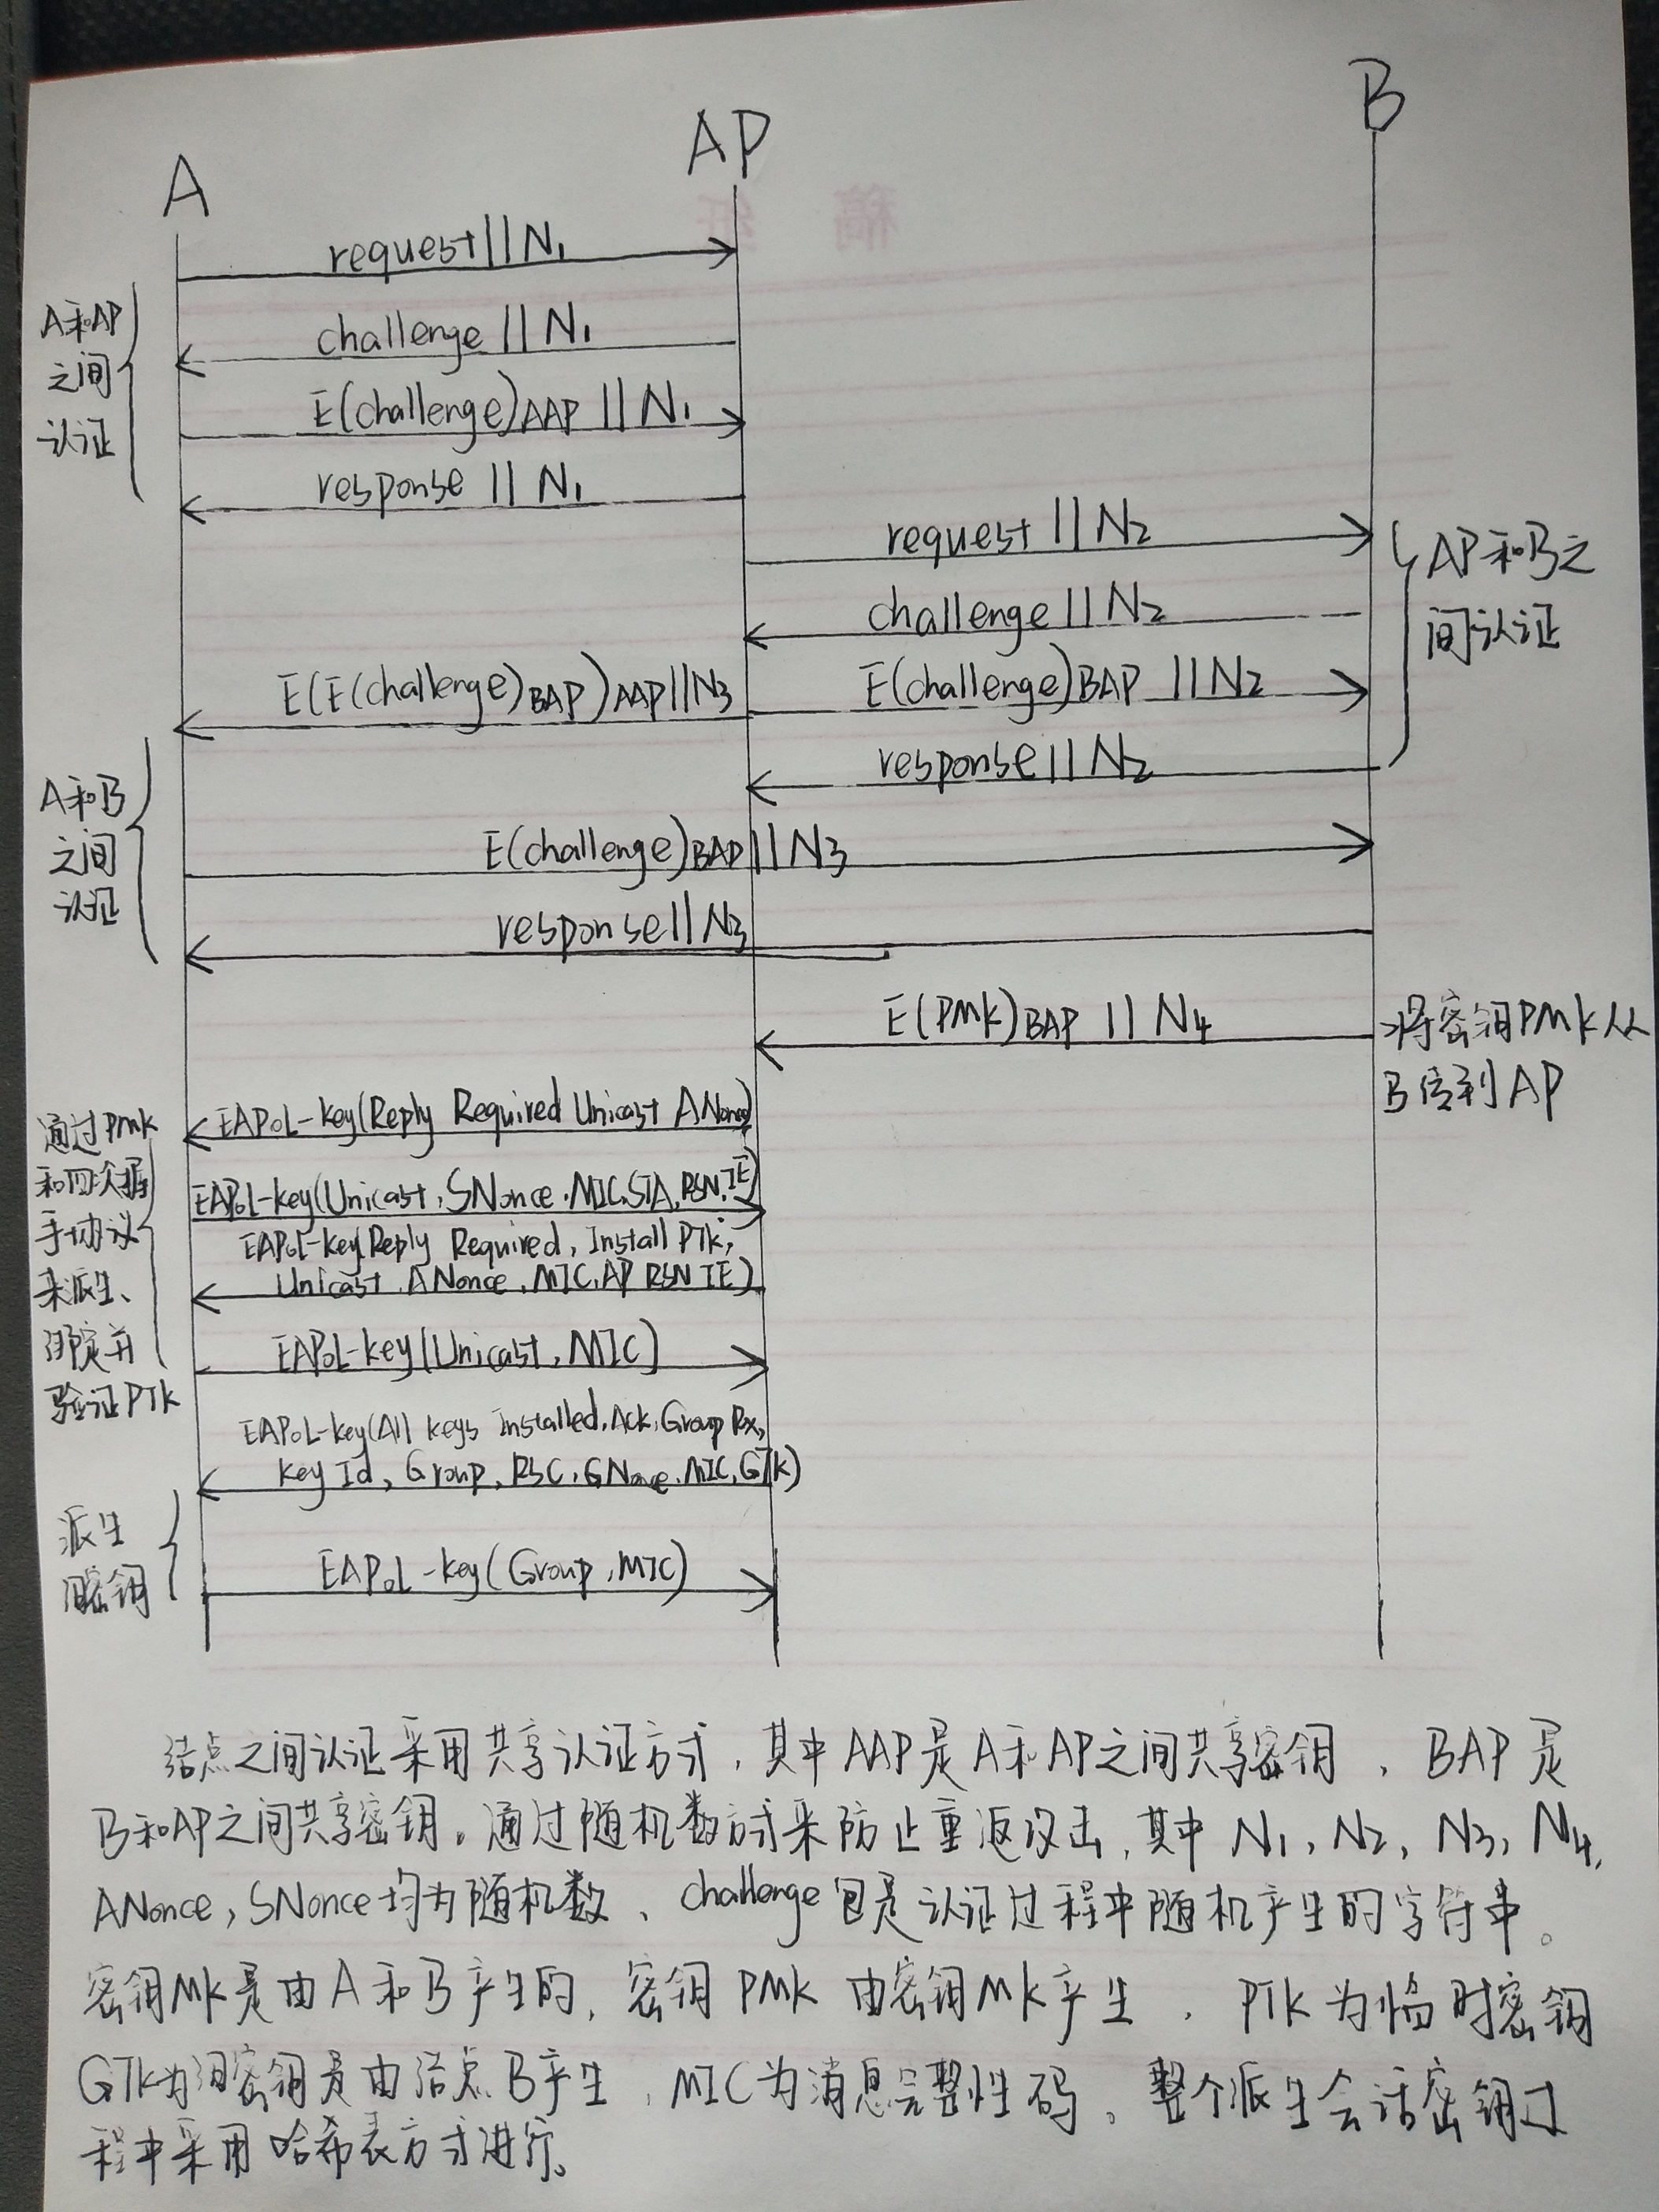 A
AP
B
request||N₁
A和AP
之间
认证
challenge||N₁
E(challenge)AAP||N₁
response||N₁
request||N₂
AP和B之
间认证
challenge||N₂
E(E(challenge)BAP)AAP||N₃
E(challenge)BAP||N₂
response||N₂
A和B
之间
认证
E(challenge)BAP||N₃
response||N₃
E(PMK)BAP||N₄
将密钥PMK从
B传到AP
通过PMK
和四次握
手协议
来派生、
绑定并
验证PTK
EAPoL-key(Reply Required Unicast ANonce)
EAPoL-key(Unicast,SNonce,MIC,STA,RSN,IE)
EAPoL-key(Reply Required, Install PTK,
Unicast,ANonce,MIC,AP RSN IE)
EAPoL-key(Unicast,MIC)
EAPoL-key(All keys installed,Ack,Group Rx,
key Id, Group, RSC,GNonce,MIC,GTK)
派生
密钥
EAPoL-key(Group,MIC)
结点之间认证采用共享认证方式,其中AAP是A和AP之间共享密钥,BAP是
B和AP之间共享密钥。通过随机数方式来防止重返攻击,其中N₁,N₂,N₃,N₄,
ANonce,SNonce均为随机数、challenge包是认证过程中随机产生的字符串。
密钥MK是由A和B产生的,密钥PMK由密钥MK产生,PTK为临时密钥
GTK为组密钥是由结点B产生,MIC为消息完整性码。整个派生会话密钥过
程中采用哈希表方式进行。
稿纸